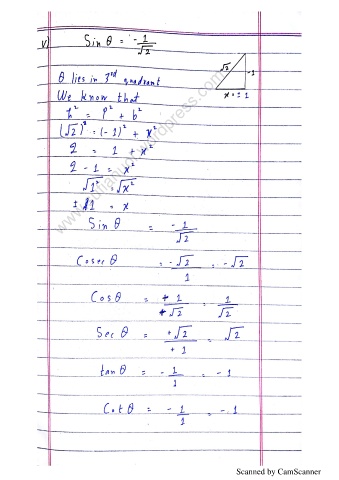 v) Sin θ = -1/√2
√2 -1
x = ± 1
θ lies in 3rd quadrant
We know that
h² = p² + b²
(√2)² = (-1)² + x²
2 = 1 + x²
2 - 1 = x²
√1² = √x²
1 = x
Sin θ = -1/√2
Cosec θ = -√2/1 = -√2
Cos θ = +1/+√2 = 1/√2
Sec θ = +√2/+1 = √2
tan θ = -1/1 = -1
Cot θ = -1/1 = -1
Scanned by CamScanner